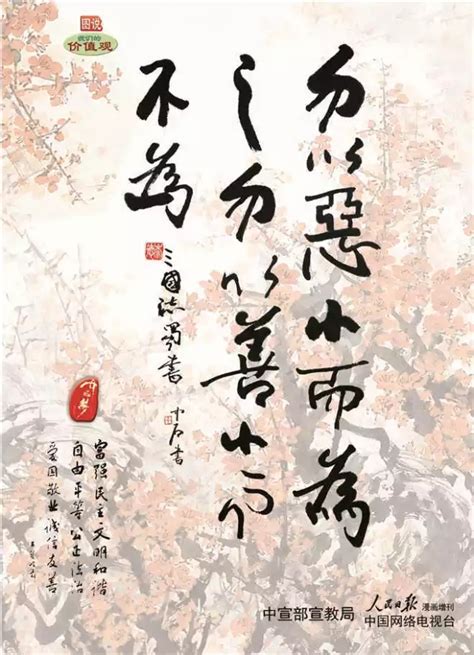 图说
我们的
价值观
勿以惡小而為
之勿以善小而
不為
三國志蜀書
富强民主文明和谐
自由平等公正法治
爱国敬业诚信友善
中宣部宣教局
人民日报 漫画增刊
中国网络电视台